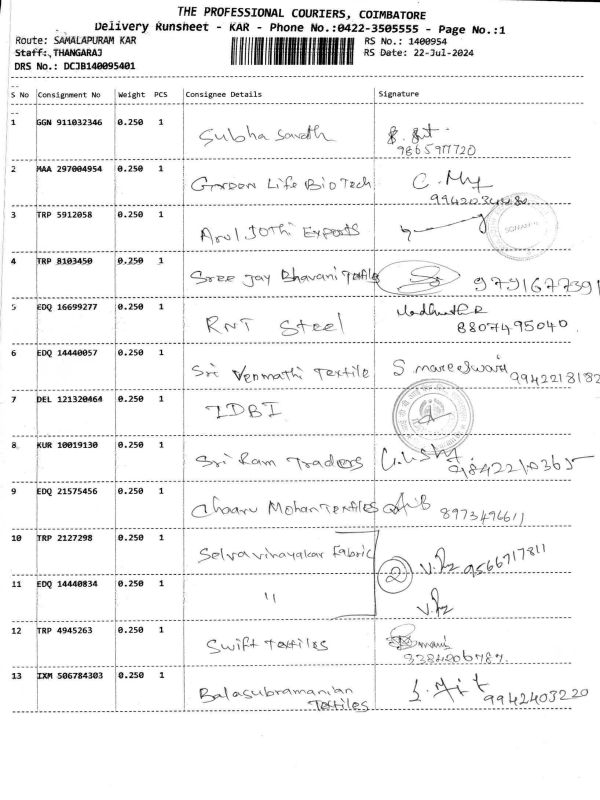 THE PROFESSIONAL COURIERS, COIMBATORE
Delivery Runsheet - KAR - Phone No.:0422-3505555 - Page No.:1
Route: SAMALAPURAM KAR RS No.: 1400954
Staff:,THANGARAJ RS Date: 22-Jul-2024
DRS No.: DCJB140095401
S No Consignment No Weight PCS Consignee Details Signature
1 GGN 911032346 0.250 1 Subha
986597720
2 MAA 297004954 0.250 1 Garden Life BioTech
3 TRP 5912058 0.250 1 Arul Jothi Exports
4 TRP 8103450 0.250 1 Sree Jay Bhavani Textiles 9791677391
5 EDQ 16699277 0.250 1 RNT Steel
8807495040
6 EDQ 14440057 0.250 1 Sri Venmathi Textile S. mareeswari 9942218182
7 DEL 121320464 0.250 1 IDBI
8 KUR 10019130 0.250 1 Sri Ram Traders
9 EDQ 21575456 0.250 1 Chaaru Mohan Textiles 8973496611
10 TRP 2127298 0.250 1 Selvavinayakar Fabric 2 9566717811
11 EDQ 14440834 0.250 1 "
12 TRP 4945263 0.250 1 Swift Textiles
13 IXM 506784303 0.250 1 Balasubramanian
Textiles 9942403220